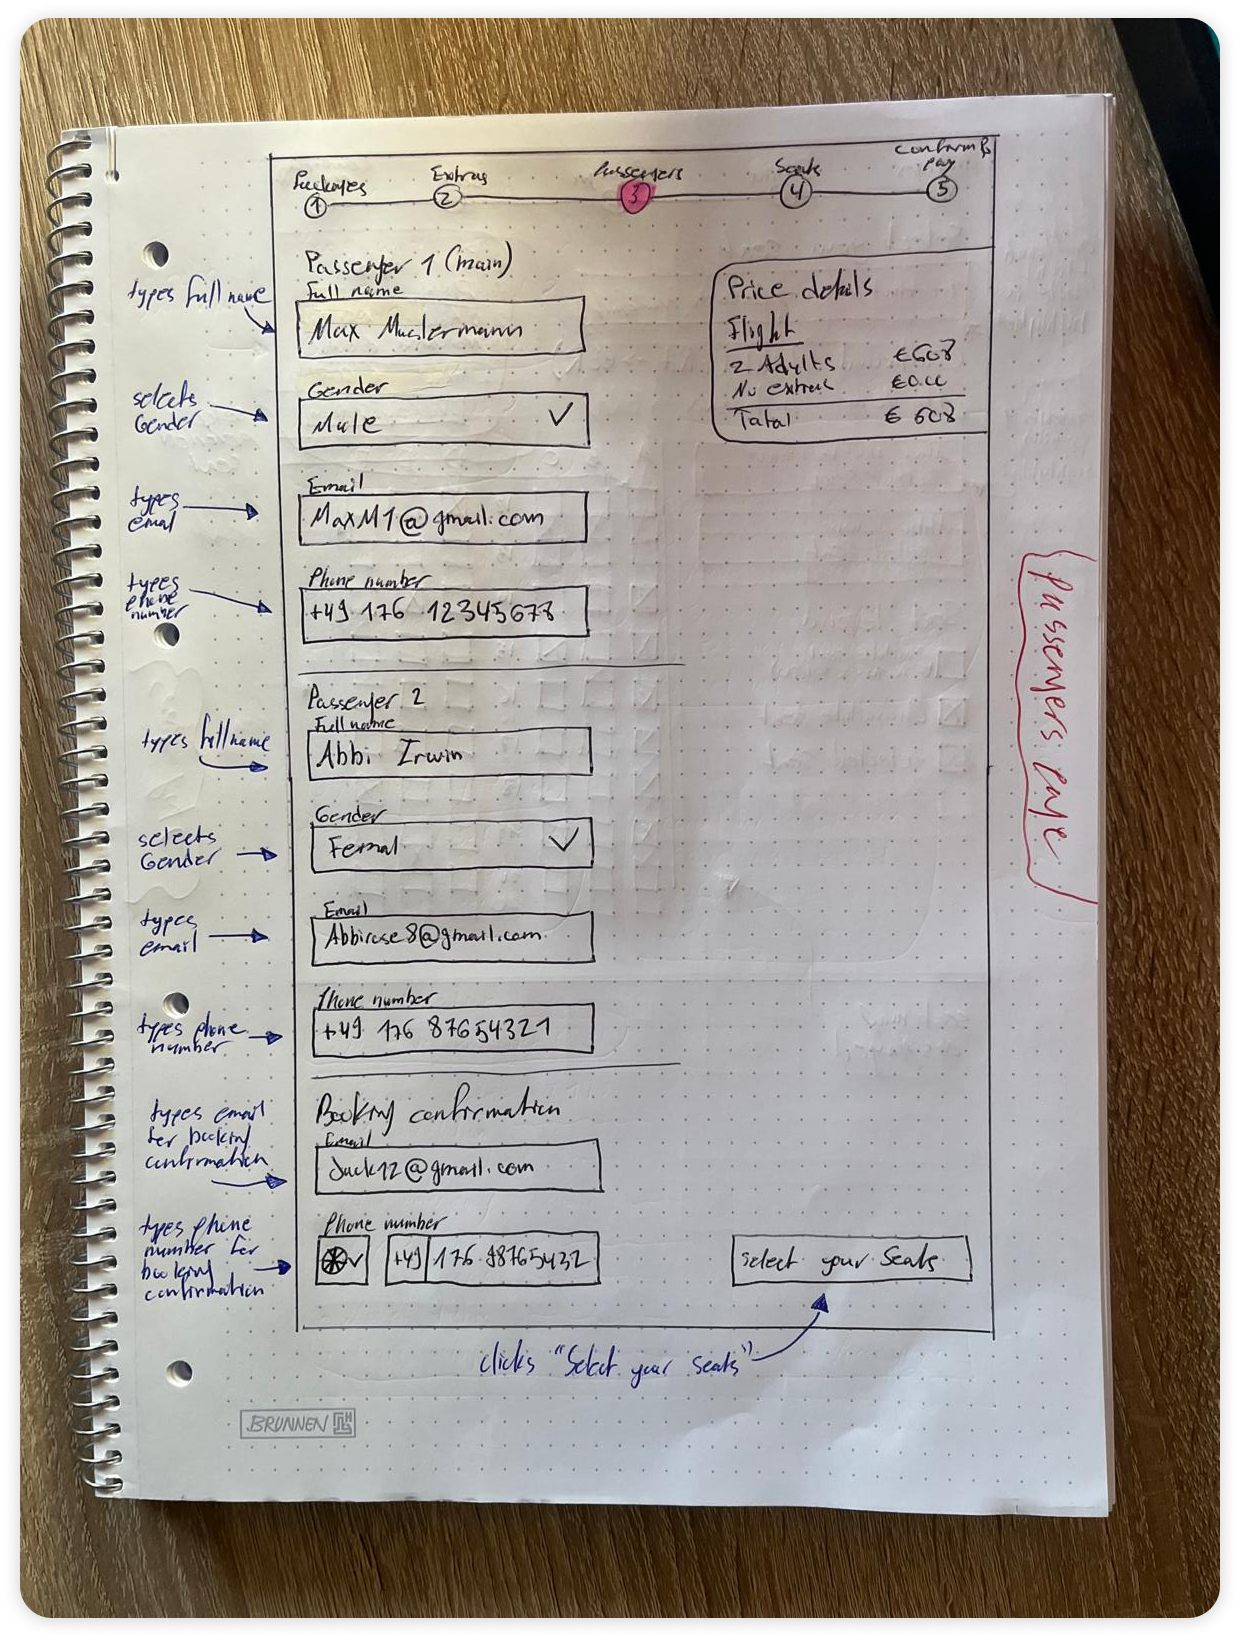 Packages
Extras
Passengers
Seats
Confirm &
pay
1
2
3
4
5
Passenger 1 (main)
Full name
Max Mustermann
Gender
Male
Email
MaxM1@gmail.com
Phone number
+49 176 12345678
Passenger 2
Full name
Abbi Irwin
Gender
Femal
Email
Abbirose8@gmail.com
Phone number
+49 176 87654321
Booking confirmation
Email
Jack12@gmail.com
Phone number
+49 176 98765432
Price details
Flight
2 Adults €608
No extras €0.00
Total € 608
Select your Seats
types full name
selects
Gender
types
email
types
phone
number
types full name
selects
Gender
types
email
types phone
number
types email
for booking
confirmation
types phone
number for
booking
confirmation
clicks "Select your seats"
Passengers page
BRUNNEN